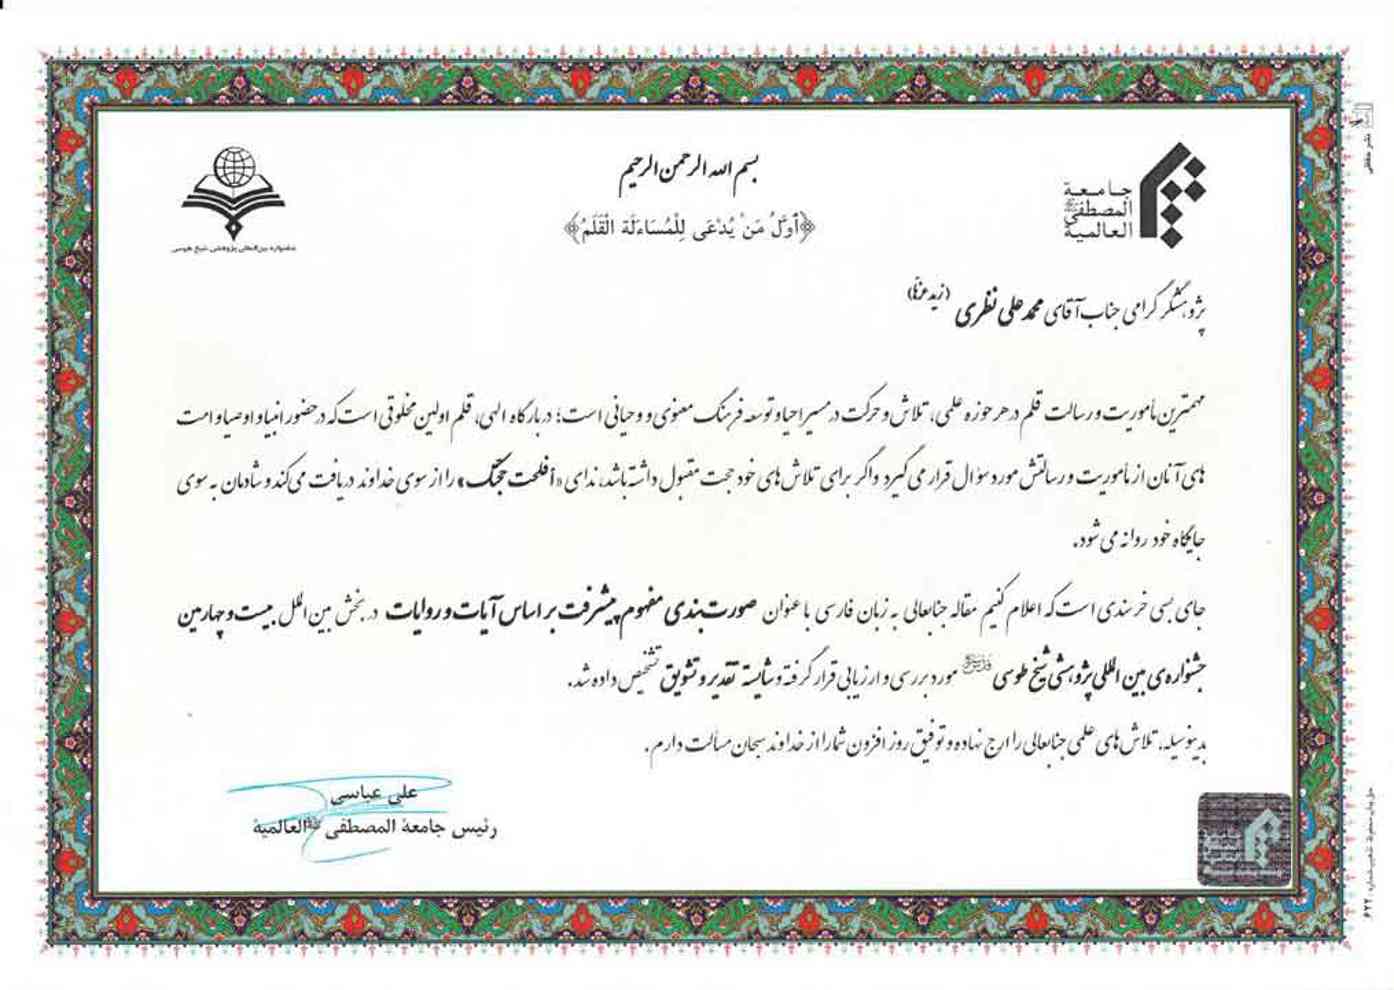 بسم الله الرحمن الرحیم
﴿أوَّلُ مَنْ يُدْعَى لِلْمُسَاءَلَة الْقَلَمُ﴾
جامعة
المصطفی
العالمية
جشنواره بین‌المللی پژوهشی شیخ طوسی
پژوهشگر گرامی جناب آقای محمد علی نظری (زید عزه)
مهمترین مأموریت و رسالت قلم در هر حوزه علمی، تلاش و حرکت در مسیر احیا و توسعه فرهنگ معنوی و وحیانی است؛ در بارگاه الهی، قلم اولین مخلوقی است که در حضور انبیا و اوصیا و امت
های آنان از مأموریت و رسالتش مورد سؤال قرار می گیرد و اگر برای تلاش های خود حجت مقبول داشته باشد، ندای «أفلحت حجتك» را از سوی خداوند دریافت می کند و شادمان به سوی
جایگاه خود روانه می شود.
جای بسی خرسندی است که اعلام کنیم مقاله جنابعالی به زبان فارسی با عنوان صورت بندی مفهوم پیشرفت بر اساس آیات و روایات در بخش بین الملل بیست و چهارمین
جشنواره ی بین المللی پژوهشی شیخ طوسی مورد بررسی و ارزیابی قرار گرفته و شایسته تقدیر و تشویق تشخیص داده شد.
بدینوسیله، تلاش های علمی جنابعالی را ارج نهاده و توفیق روز افزون شما را از خداوند سبحان مسألت دارم.
علی عباسی
رئیس جامعة المصطفی العالمیة